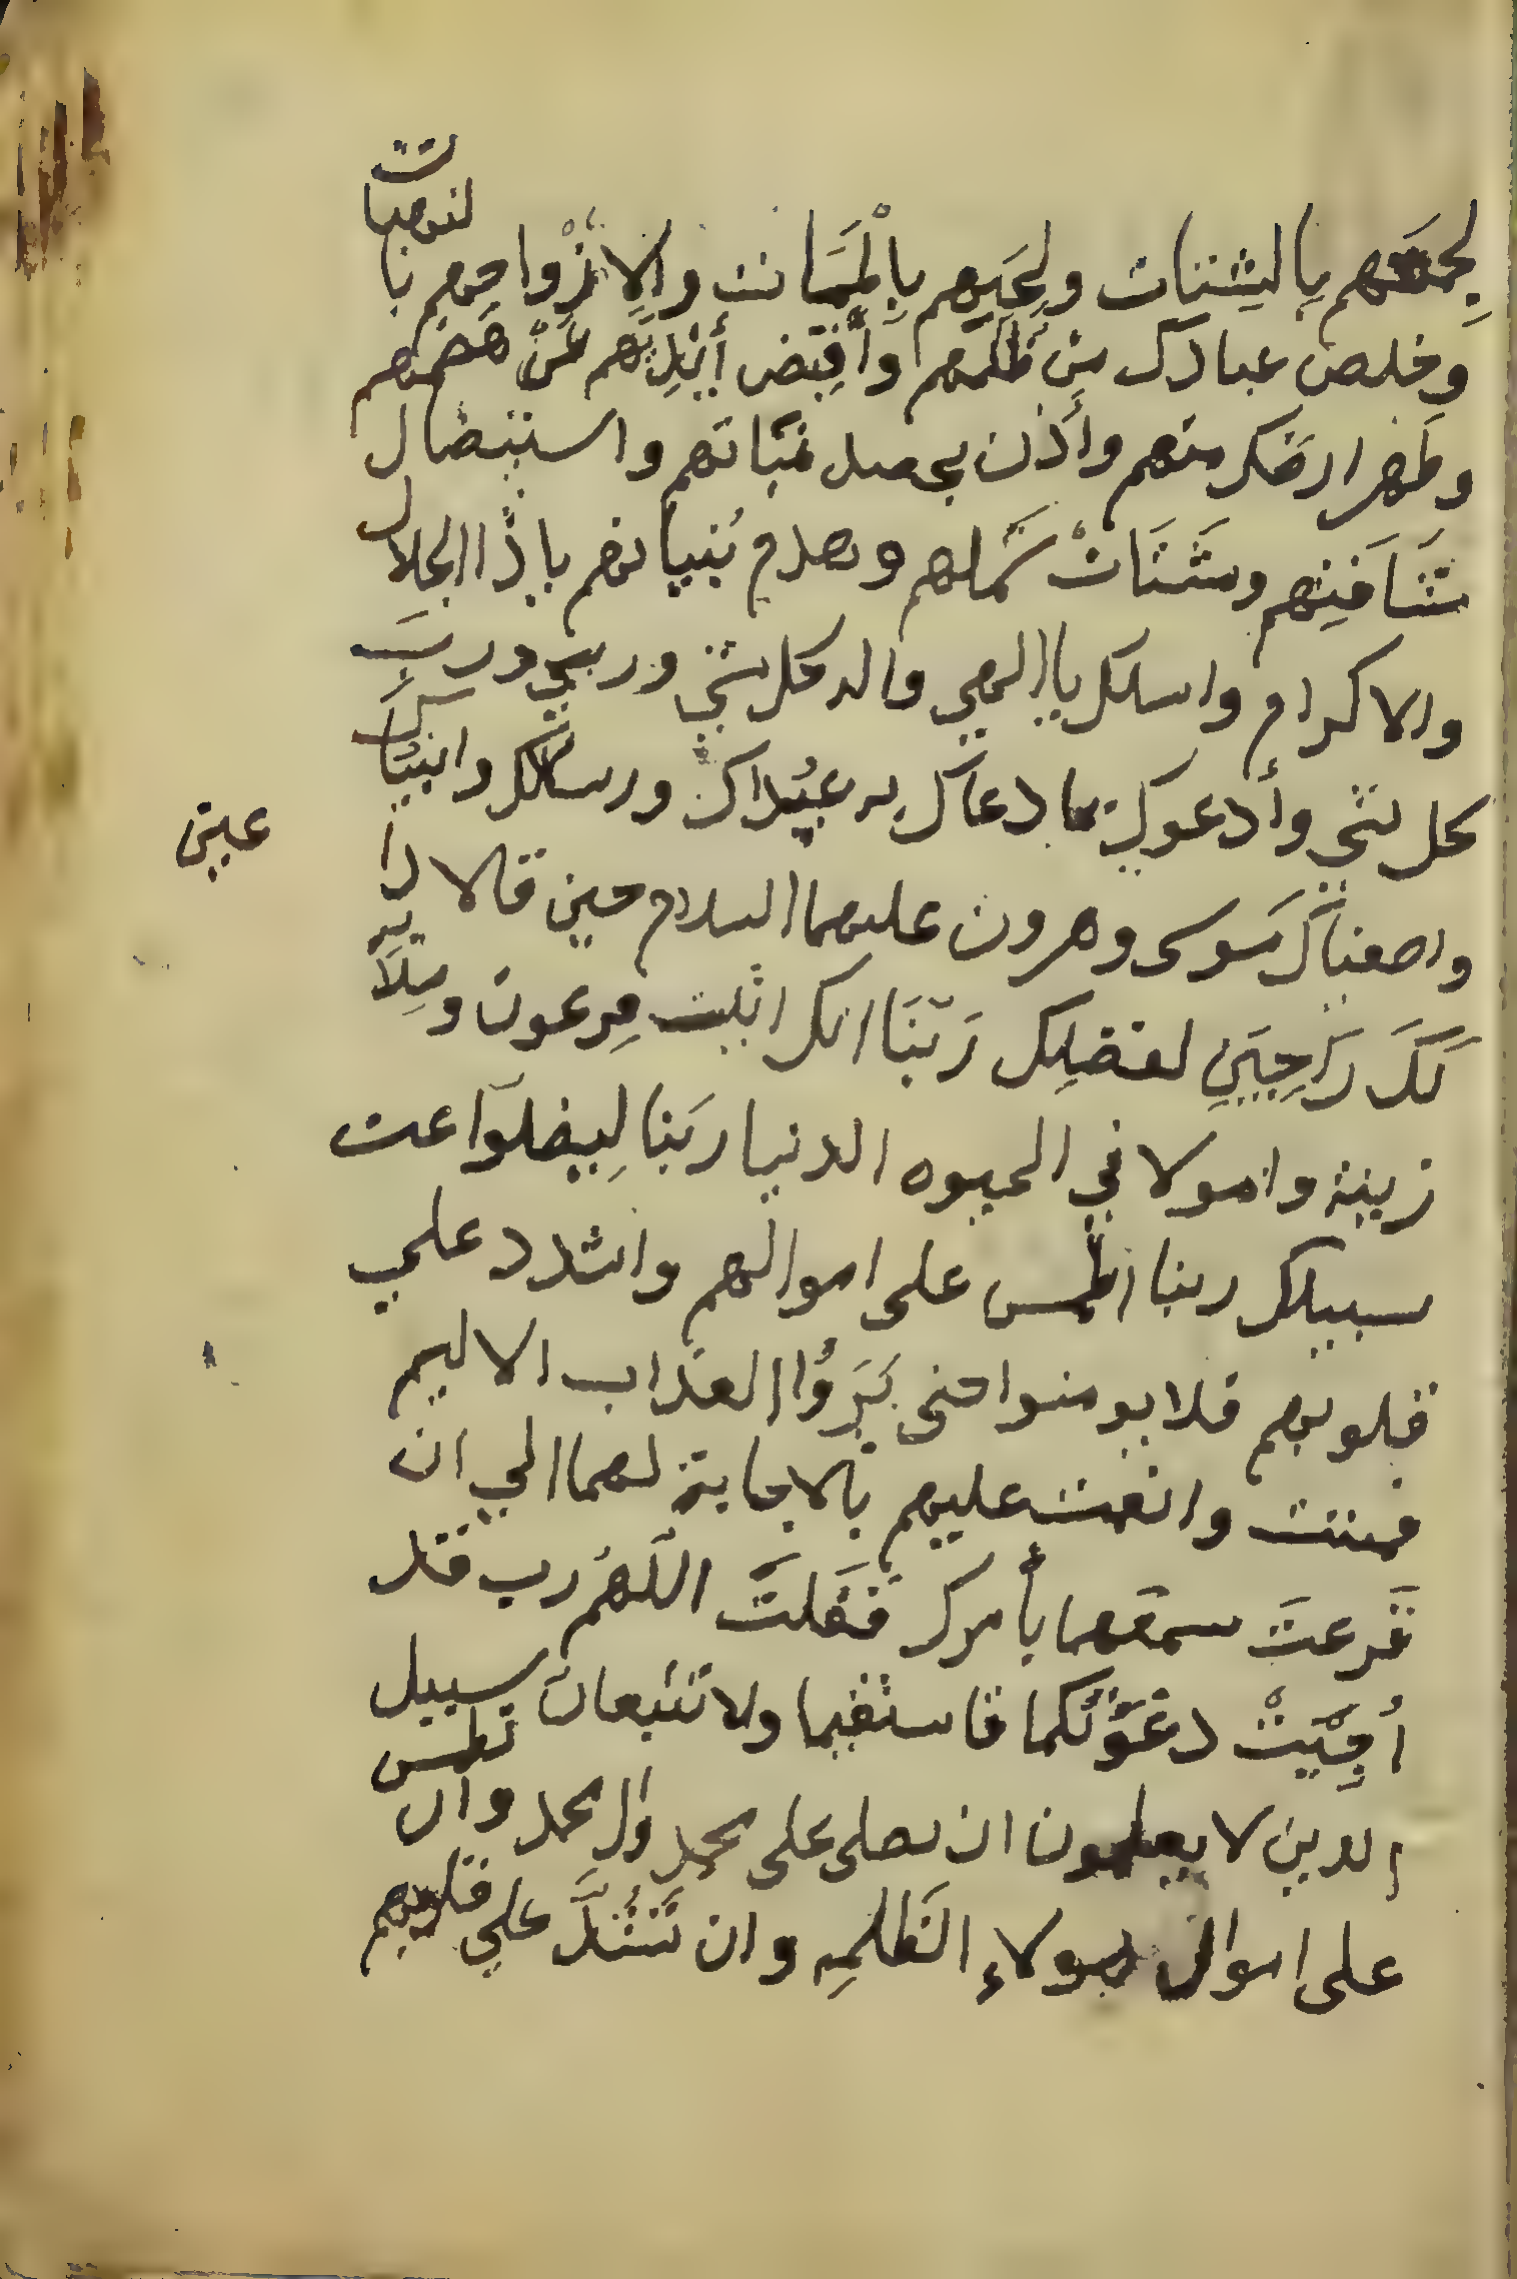 لِجمعهم بالشتات ولِحَيهم بِالْمَمات ولِازْواجهم بالنهبات
وخلص عبادك من ظلمهم وأقبض أيْدِيَهم عَنْ هضمهم
وطهر ارضك منهم وأذن بحصد نباتهم واستيصال
شَافَتِهم وشَتَاتْ شَملهم وهدم بُنيانهم ياذا الجلال
والاكرام واسلك ياالهي واله كل شي وربي ورب
كل شي وأدعوك بما دعاك به عبداك ورسلك وانبياك
واصفياك موسى وهرون عليهما السلام حين قالا داعين
لَكَ رَاجِيَينِ لفضلِك رَبّنَا انك اتيت فِرعون وملآه
زينة واموالا في الحيوه الدنيا رَبَنا لِيضلوا عن
سبيلك ربنا اطمس على اموالهم واشدد علي
قلوبهم فلا يومنوا حتى يَرَوُا العذاب الاليم
فمننت وانعمت عليهم بالاجابة لهما الي ان
قَرعتَ سمعهما بأمرك فَقَلتَ اللهُم رب قد
أجِيْبَتْ دعْوَتُكما فاستقيما ولا تتبعان سبيل
الدين لا يعلمون ان تصلى على محمد وال محمد وان تطمس
على اموال هولاء الظلمه وان تَشُدَّ علي قلوبهم